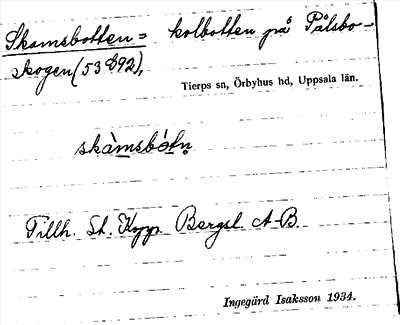 Skamsbotten = kolbotten på Pålsbo-
skogen (53 892),
Tierps sn, Örbyhus hd, Uppsala län.
skàmsbótṇ
Tillh. St. Kopp. Bergsl. A-B.
Ingegärd Isaksson 1934.